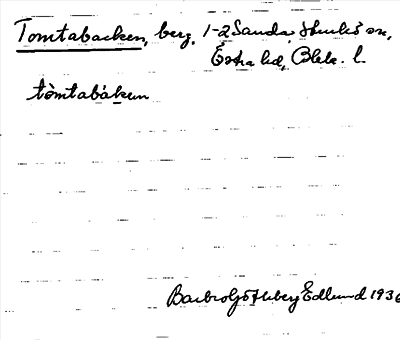 Tomtabacken, berg, 1-2 Sanda,
Östra hd, Blek. l.
tòmtabákken
Barbro Götheberg Edlund 1936